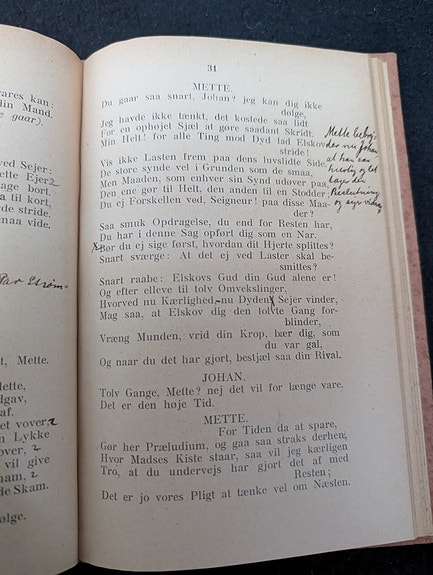 vares kan:
din Mand.
gaar).
ved Sejer:
tte Ejer 2
sage bort.
a til kort,
rde stride.
maa vide.
Par Strøm-
t, Mette.
ette,
dgav,
af.
et vover 2
n Lykke
over, 2
vil give
nam, 2
de Skam.
ølge.
31
METTE.
Du gaar saa snart, Johan? jeg kan dig ikke
dølge,
Jeg havde ikke tænkt, det kostede saa lidt
For en ophøjet Sjæl at gøre saadant Skridt.
Min Helt! for alle Ting mod Dyd lad Elskov
stride!
Vis ikke Lasten frem paa dens luvslidte Side,
De store synde vel i Grunden som de smaa,
Men Maaden, som enhver sin Synd udøver paa,
Den ene gør til Helt, den anden til en Stodder;
Du ej Forskellen ved, Seigneur! paa disse Maa-
der?
Saa smuk Opdragelse, du end for Resten har,
Du har i denne Sag opført dig som en Nar.
Bør du ej sige først, hvordan dit Hjerte splittes?
Snart sværge: At det ej ved Laster skal be-
smittes?
Snart raabe: Elskovs Gud din Gud alene er!
Og efter elleve til tolv Omvekslinger,
Hvorved nu Kærlighed, nu Dyden Sejer vinder,
Mag saa, at Elskov dig den tolvte Gang for-
blinder,
Vræng Munden, vrid din Krop, bær dig, som
du var gal,
Og naar du det har gjort, bestjæl saa din Rival.
JOHAN.
Tolv Gange, Mette? nej det vil for længe vare.
Det er den høje Tid.
METTE.
For Tiden da at spare,
Gør her Præludium, og gaa saa straks derhen;
Hvor Madses Kiste staar, saa vil jeg kærligen
Tro, at du undervejs har gjort det af med
Resten;
Det er jo vores Pligt at tænke vel om Næsten.
Mette bebrej-
des nu Johan
at han saa
hurtig og let
tager sin
Beslutning